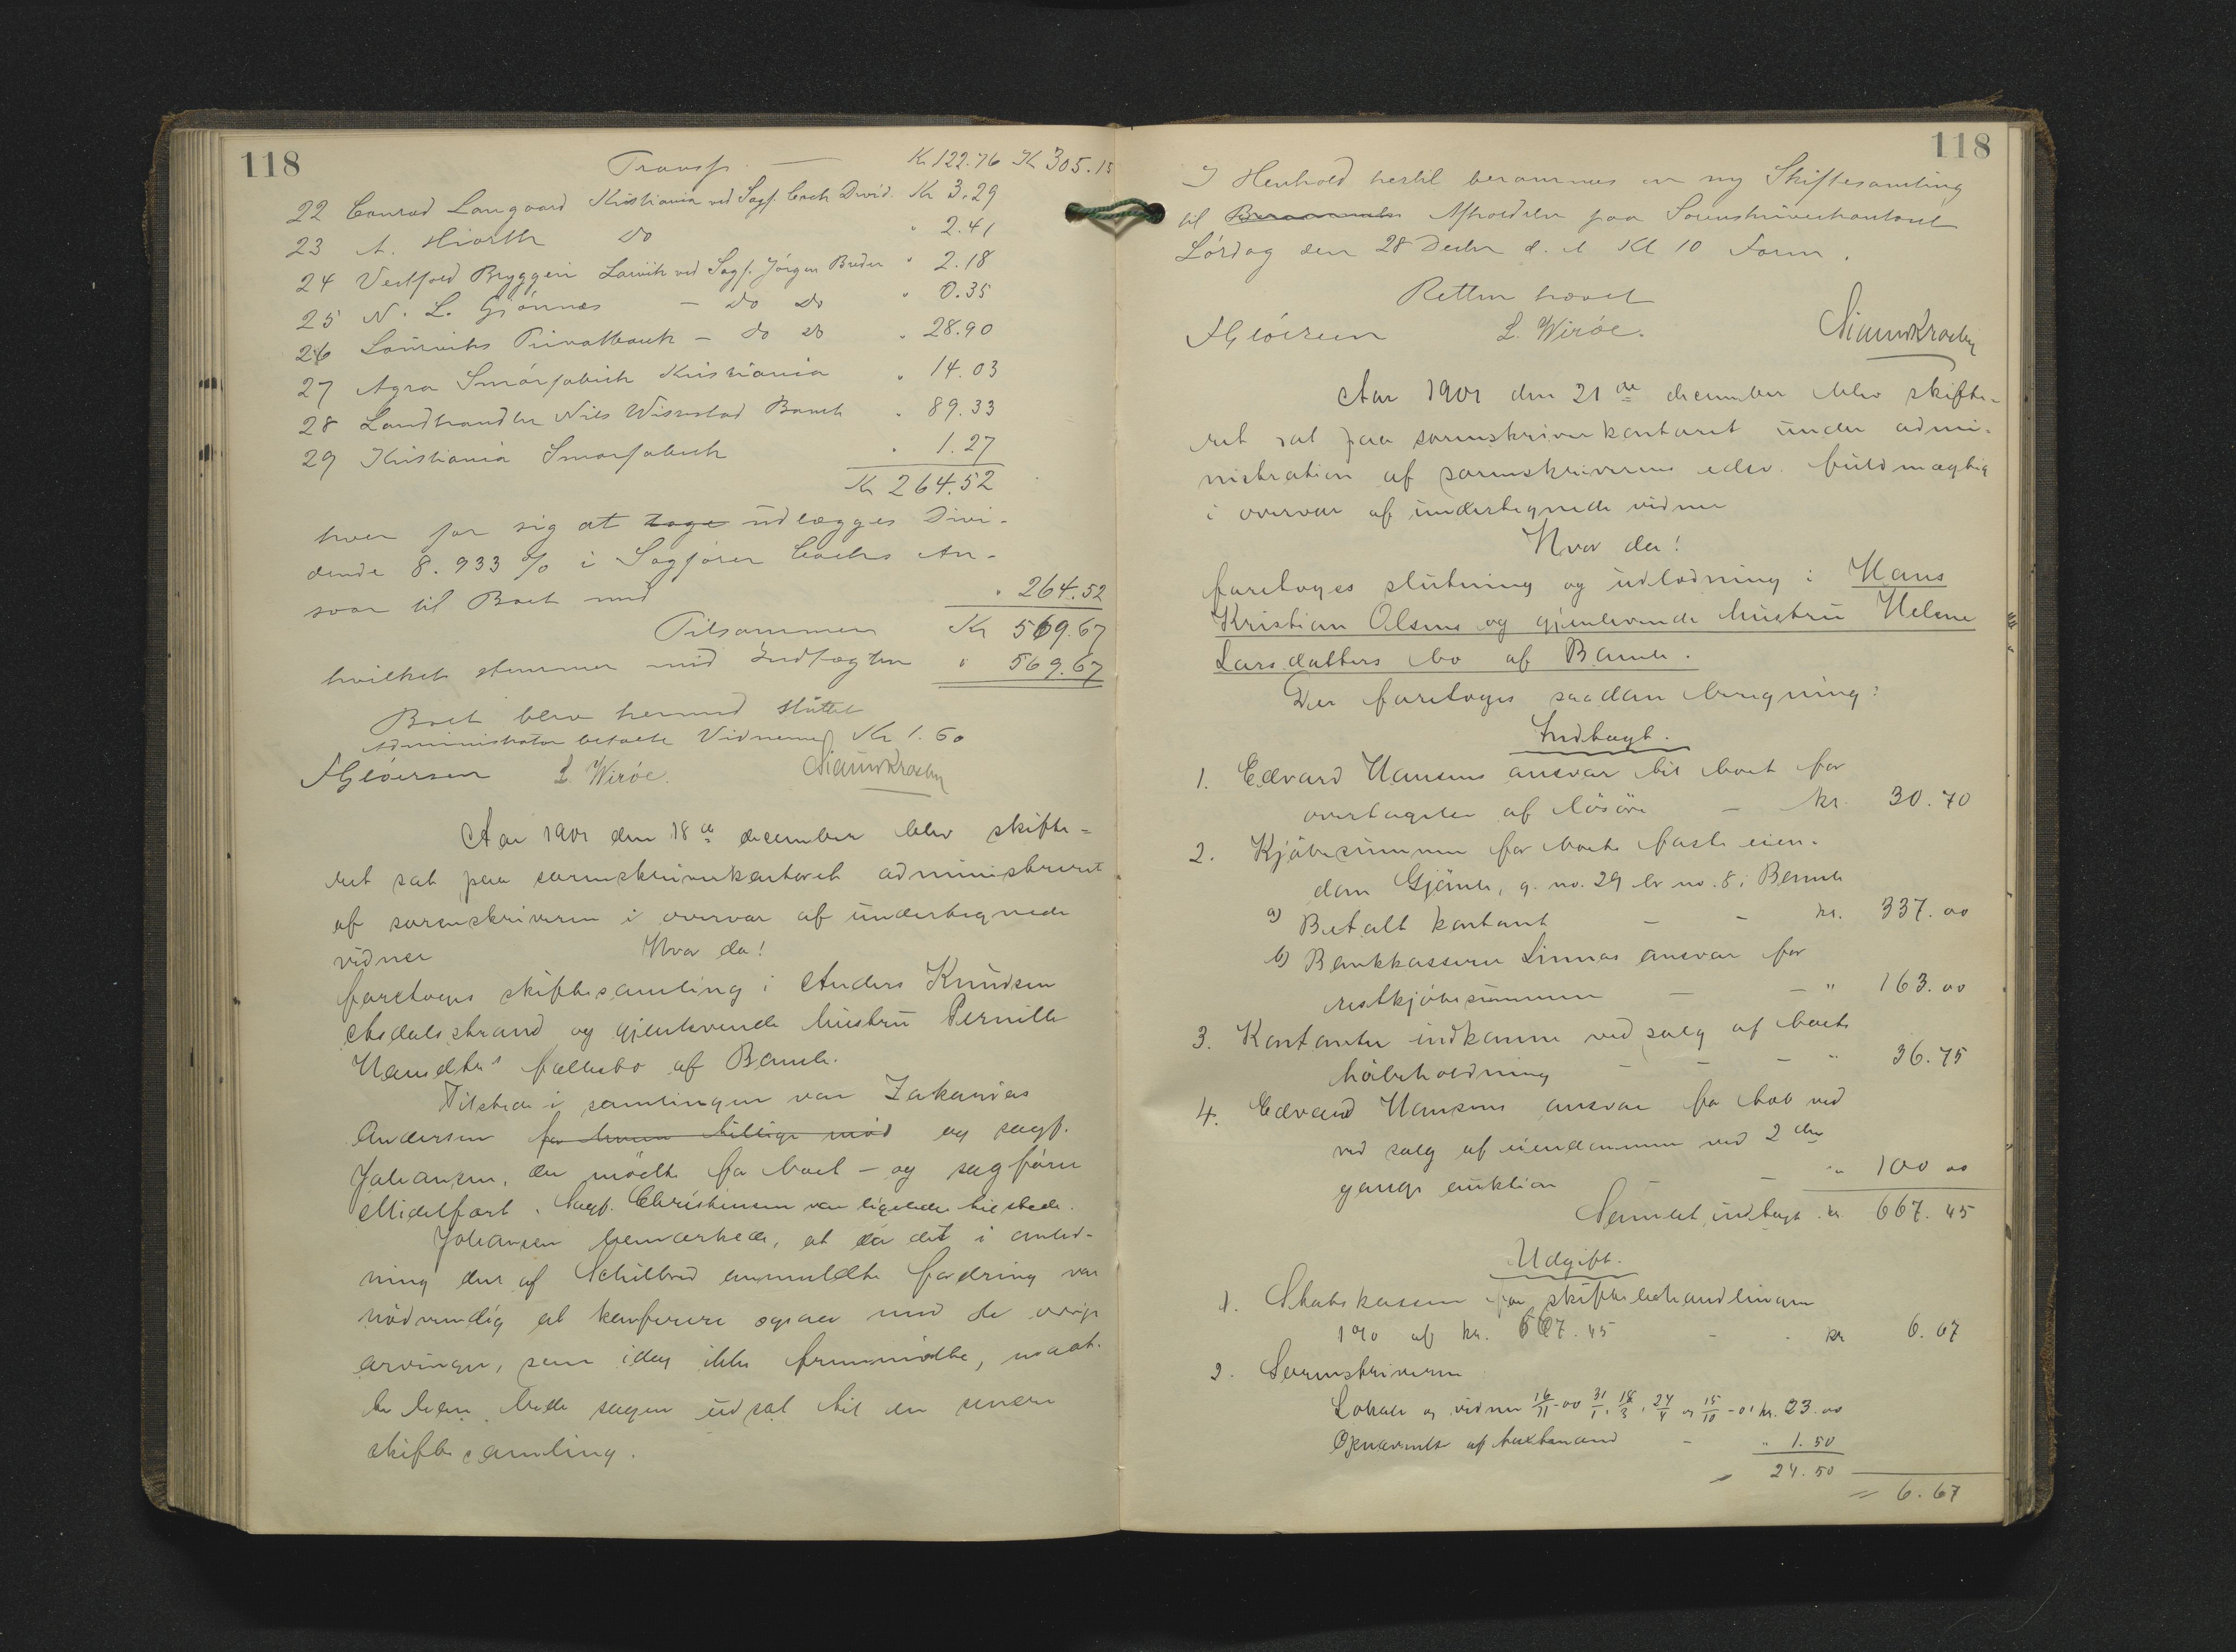 118
Transp. — Kr 122.76 Kr 305.15
22 Conrad Langaard Kristiania ved Sagf. Coch Divid. Kr 3.29
23 A. Hiorth do " 2.41
24 Vestfold Bryggeri Larvik ved Sagf. Jörgen Bruder " 2.18
25 N. L. Gjönnes — do do " 0.35
26 Laurviks Privatbank — do do " 28.90
27 Agra Smörfabrik Kristiania " 14.03
28 Landhandler Nils Wissestad Bamle " 89.33
29 Kristiania Smörfabrik " 1.27
Kr 264.52
hver for sig at tage udlægges Divi-
dende 8.933 % i Sagförer Cochs An-
svar til Boet med " 264.52
Tilsammen Kr 569.67
hvilket stemmer med Indtægten " 569.67
Boet blev hermed sluttet
Administrator betalte Vidnerne Kr 1.60
F Glöersen L. Wiröe.
Aar 1901 den 18de december blev skifte-
ret sat paa sorenskriverkontoret administreret
af sorenskriveren i overvær af undertegnede
vidner
Hvor da!
foretoges skiftesamling i Anders Knudsen
Asdalstrand og gjenlevende hustru Pernille
Hansdtrs fællesbo af Bamle.
Tilstede i samlingen var Zakarias
Andersen for hvem tillige mød og sagf.
Johansen, der mödte for boet – og sagförer
Midelfart. Sagf. Christensen var ligeledes tilstede.
Johansen bemærkede, at da det i anled-
ning den af Schilbred anmeldte fordring var
nödvendig at konferere ogsaa med de övrige
arvinger, som idag ikke fremmödte, maat-
te han bede sagen udsat til en senere
skiftesamling.
118
I Henhold hertil berammes en ny Skiftesamling
til Afholdelse paa Sorenskriverkontoret
Lördag den 28 Decbr d. A Kl 10 Form.
Retten hævet
F Glöersen L. Wiröe.
Aar 1901 den 21de december blev skifte-
ret sat paa sorenskriverkontoret under admi-
nistration af sorenskriverens edsv. fuldmægtig
i overvær af undertegnede vidner
Hvor da!
foretoges slutning og udlodning i Hans
Kristian Olsens og gjenlevende hustru Helene
Larsdatters bo af Bamle.
Der foretoges saadan beregning:
Indtægt.
1. Edvard Hansens ansvar til boet for
overtagelse af lösöre — kr. 30.70
2. Kjöbesummen for boets faste eien-
dom Gjömle, g. no. 29 br no. 8 i Bamle
a) Betalt kontant — — kr. 337.00
b) Bankkasserer Linnas ansvar for
restkjöbesummen — — " 163.00
3. Kontanter indkomne ved salg af boets
höbeholdning — — " 36.75
4. Edvard Hansens ansvar for bob ved
ved salg af eiendommen ved 2den
gangs auktion — " 100 00
Samlet indtægt kr 667.45
Udgift.
1. Statskassen for skiftebehandlingen
1% af kr. 667.45 — kr 6.67
2. Sorenskriveren
Lokale og vidner 16/11-00 31/1, 18/3, 24/4 og 15/10-01 kr. 23.00
Opnævnelse af takstmænd — " 1.50
24.50
6.67